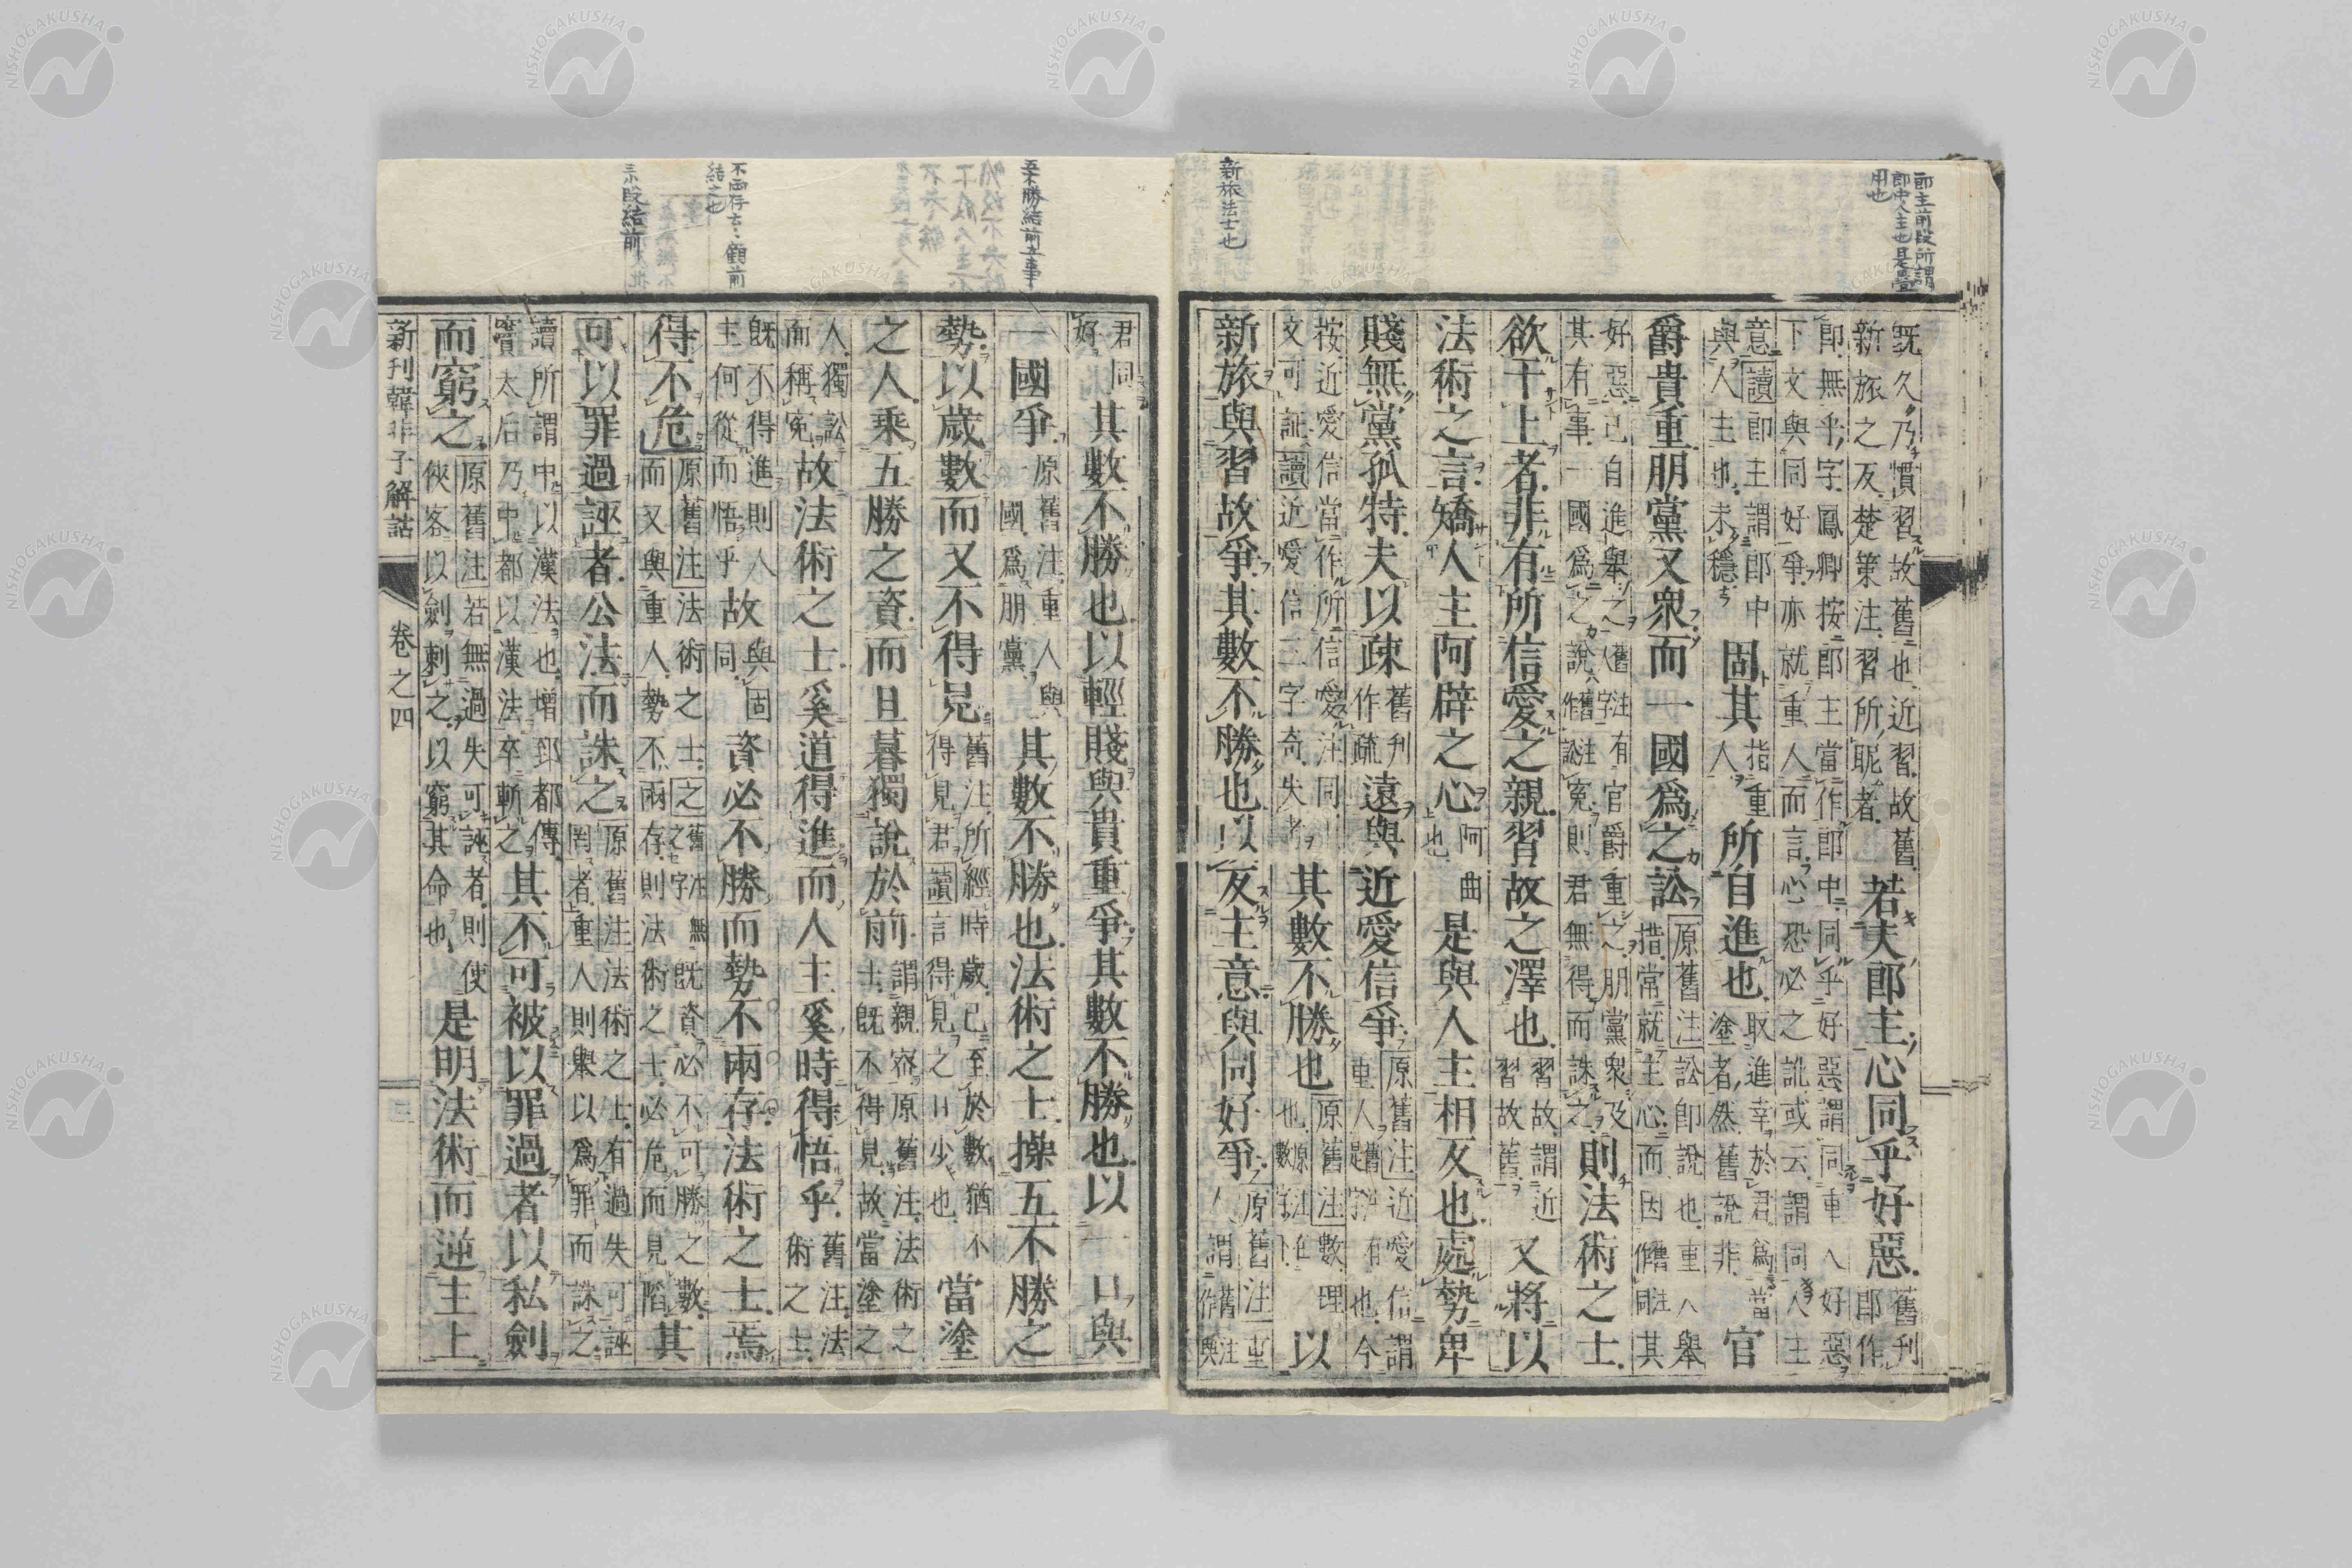 新旅法士也
既久乃慣習故舊也近習故舊
新旅之反楚策注習所昵者
若夫郎主心同乎好惡
舊刊
郎作
郎無乎字鳳卿按郎主當作郎中同乎好惡謂同重人好惡
下文與同好爭亦就重人而言心恐必之訛或云謂同人主
意讀郎主謂郎中
與人主也未穩
固其
指重
人
所自進也
取進幸於君爲當
塗者然舊說非
官
爵貴重朋黨又衆而一國爲之訟
原舊注訟即說也重人舉
措常就主心而因同其
好惡已自進舉之有官爵重之朋黨衆及
其有事一國爲之說冤則君無得而誅之
則法術之士
欲干上者非有所信愛之親習故之澤也
習故謂近
習故舊
又將以
法術之言矯人主阿辟之心
阿曲
也
是與人主相反也處勢卑
賤無黨孤特夫以疎
舊刊
作疏
遠與近愛信爭
原舊注近愛信謂
重人也今
按近愛信當作所信愛注同
文可証讀近愛信三字奇失考
其數不勝也
原舊注數理
也
以
新旅與習故爭其數不勝也以反主意與同好爭
原舊注重
人謂與
吾不勝結前五事
不兩存古顧前
結之也
示段結前
君同
好
其數不勝也以輕賤與貴重爭其數不勝也以一口與
一國爭
原舊注重人與
一國爲朋黨
其數不勝也法術之士操五不勝之
勢以歲數而又不得見
舊注所經時歲已至於數猶不
得見君讀言得見之日少也
當塗
之人乘五勝之資而旦暮獨說於前
謂親察原舊注法術之
士既不得見故當塗之
人獨訟
而稱冤
故法術之士奚道得進而人主奚時得悟乎
舊注法
術之士
既不得進則人
主何從而悟乎
故
與固
同
資必不勝而勢不兩存法術之士焉
得不危
原舊注法術之士之既資必不可勝之數
而又與重人勢不兩存則法術之士必危而見陷
其
可以罪過誣者公法而誅之
原舊注法術之士有過失可誣
罔者重人則舉以爲罪而誅之
讀所謂中以漢法也增郅都傳
竇太后乃中都以漢法卒斬之
其不可被以罪過者以私劍
而窮之
原舊注若無過失可誣者則使
俠客以劍刺之以窮其命也
是明法術而逆主上
新刊韓非子解詁
卷之四
三